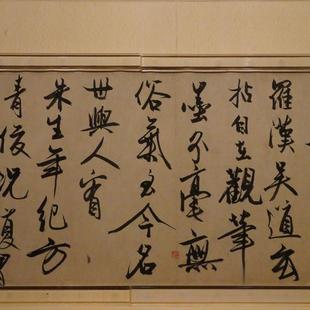 羅漢吳道玄
拈自在觀筆
墨分毫無
俗氣至今名
世與人
朱生年紀方
青俊況復